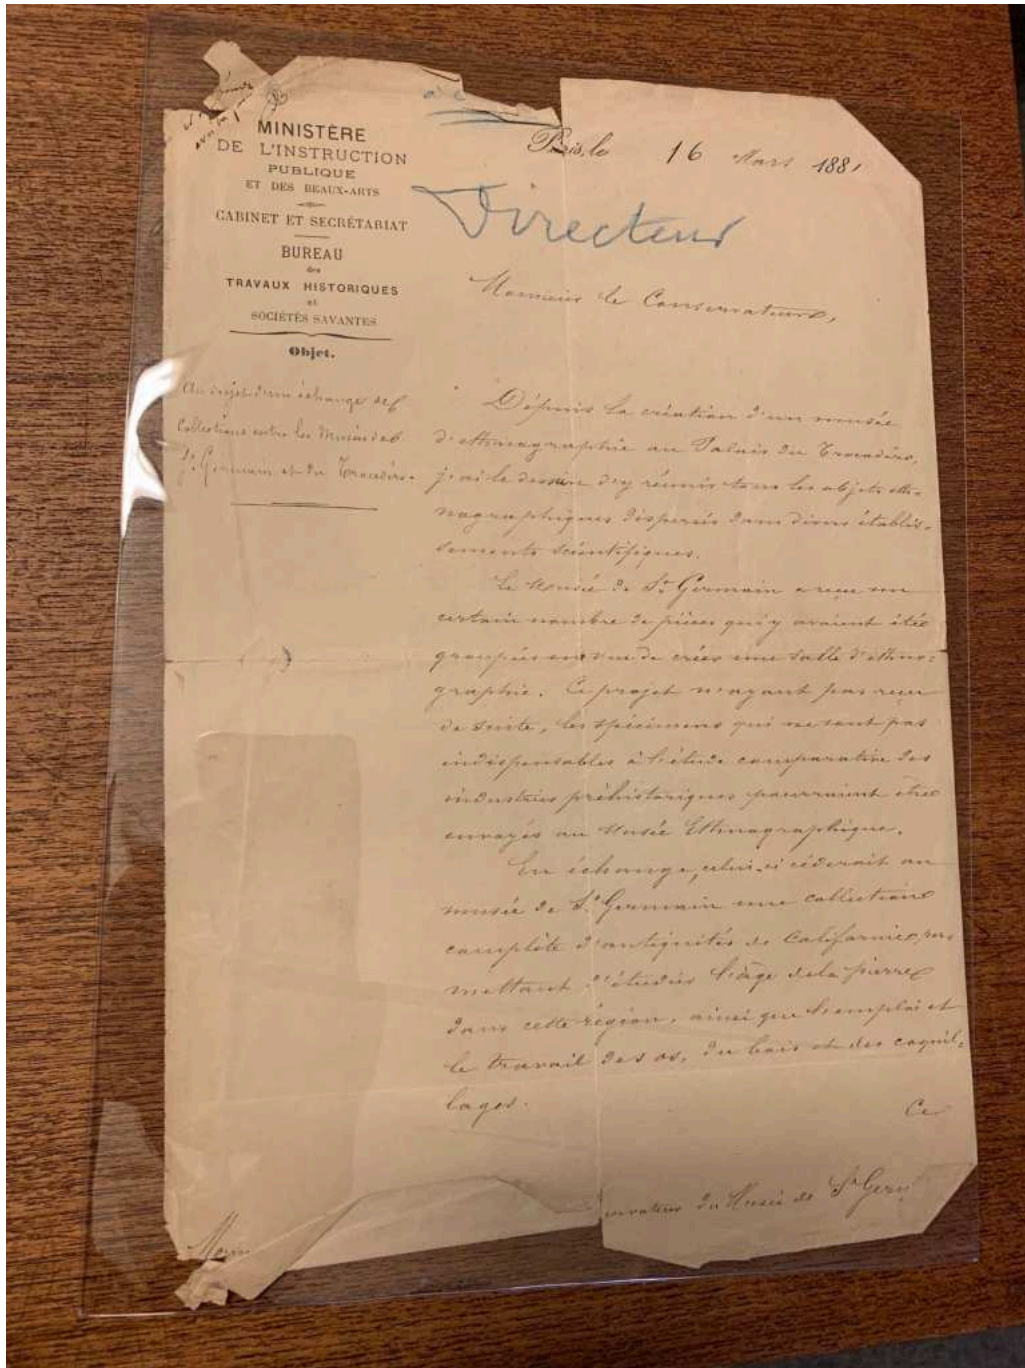 MINISTÈRE
DE L'INSTRUCTION
PUBLIQUE
ET DES BEAUX-ARTS
CABINET ET SECRÉTARIAT
BUREAU
des
TRAVAUX HISTORIQUES
et
SOCIÉTÉS SAVANTES
Objet.
Au sujet d'un échange de
Collections entre les Musées de
St Germain et du Trocadéro.
Paris, le 16 Mars 1881
Directeur
Monsieur le Conservateur,
Dépuis la création d'un musée
d'ethnographie au Palais du Trocadéro,
j'ai le dessein d'y réunir tous les objets eth-
nographiques dispersés dans divers établis-
sements scientifiques.
Le Musée de St Germain a reçu un
certain nombre de pièces qui y avaient été
groupées en vue de créer une salle d'ethno-
graphie. Ce projet n'ayant pas reçu
de suite, les spécimens qui ne sont pas
indispensables à l'étude comparative des
industries préhistoriques pourraient être
envoyés au Musée Ethnographique.
En échange, celui-ci céderait au
musée de St Germain une collection
complète d'antiquités de Californie, per
mettant d'étudier l'âge de la pierre
dans cette région, ainsi que l'emploi et
le travail des os, du bois et des coquil-
lages.
Ce
servateur du Musée de St Germ